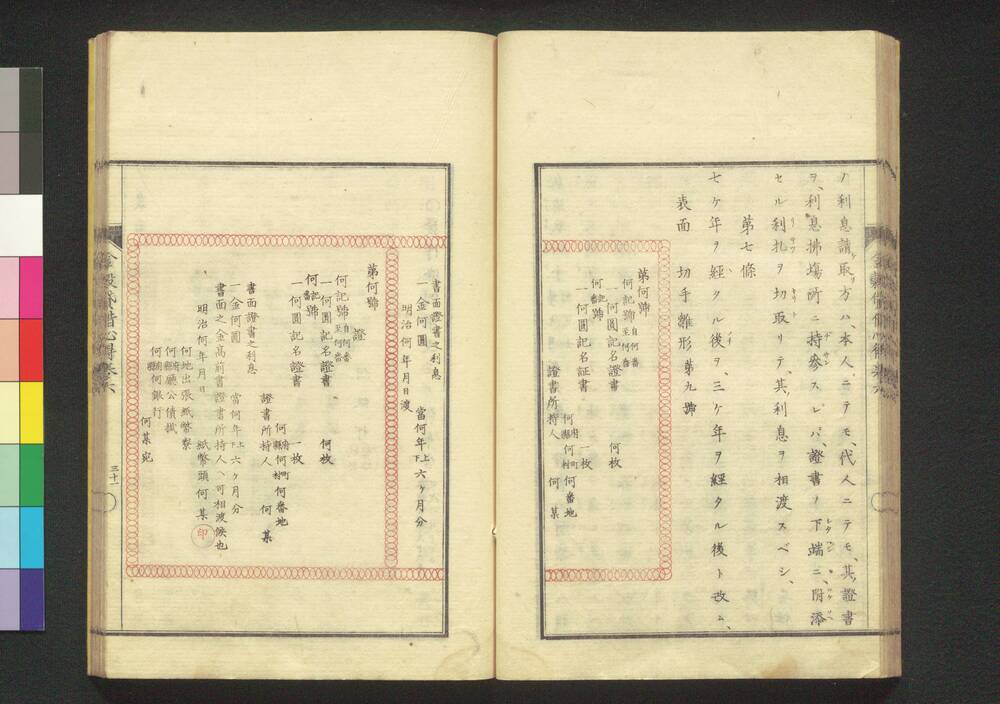 ノ利息請取方ハ、本人ニテモ、代人ニテモ、其證書
ヲ、利息拂場所ニ持參スレバ、證書ノ下端ニ、附添
セル利札ヲ切取リテ、其利息ヲ相渡スベシ、
第七條
七ケ年ヲ經タル後ヲ、三ケ年ヲ經タル後ト改ム、
表面 切手雛形 第九號
第何號
何記號 自何番 至何番
一何圓記名證書 何枚
何記號 何番
一何圓記名証書 一枚
何府縣何町村何番地
證書所持人 何某
書面證書之利息
一金何圓 當何年上下六ケ月分
明治何年月日渡
第何號
證
何記號 自何番 至何番
一何圓記名證書 何枚
何記號 何番
一何圓記名證書 一枚
何府縣何町村何番地
證書所持人 何某
書面證書之利息
一金何圓 當何年上下六ケ月分
書面之金高前書證書所持人ヘ可相渡候也
明治何年月日 紙幣頭何某 印
何地出張紙幣寮
何府縣廳公債掛
何國何銀行
何某宛
三十一